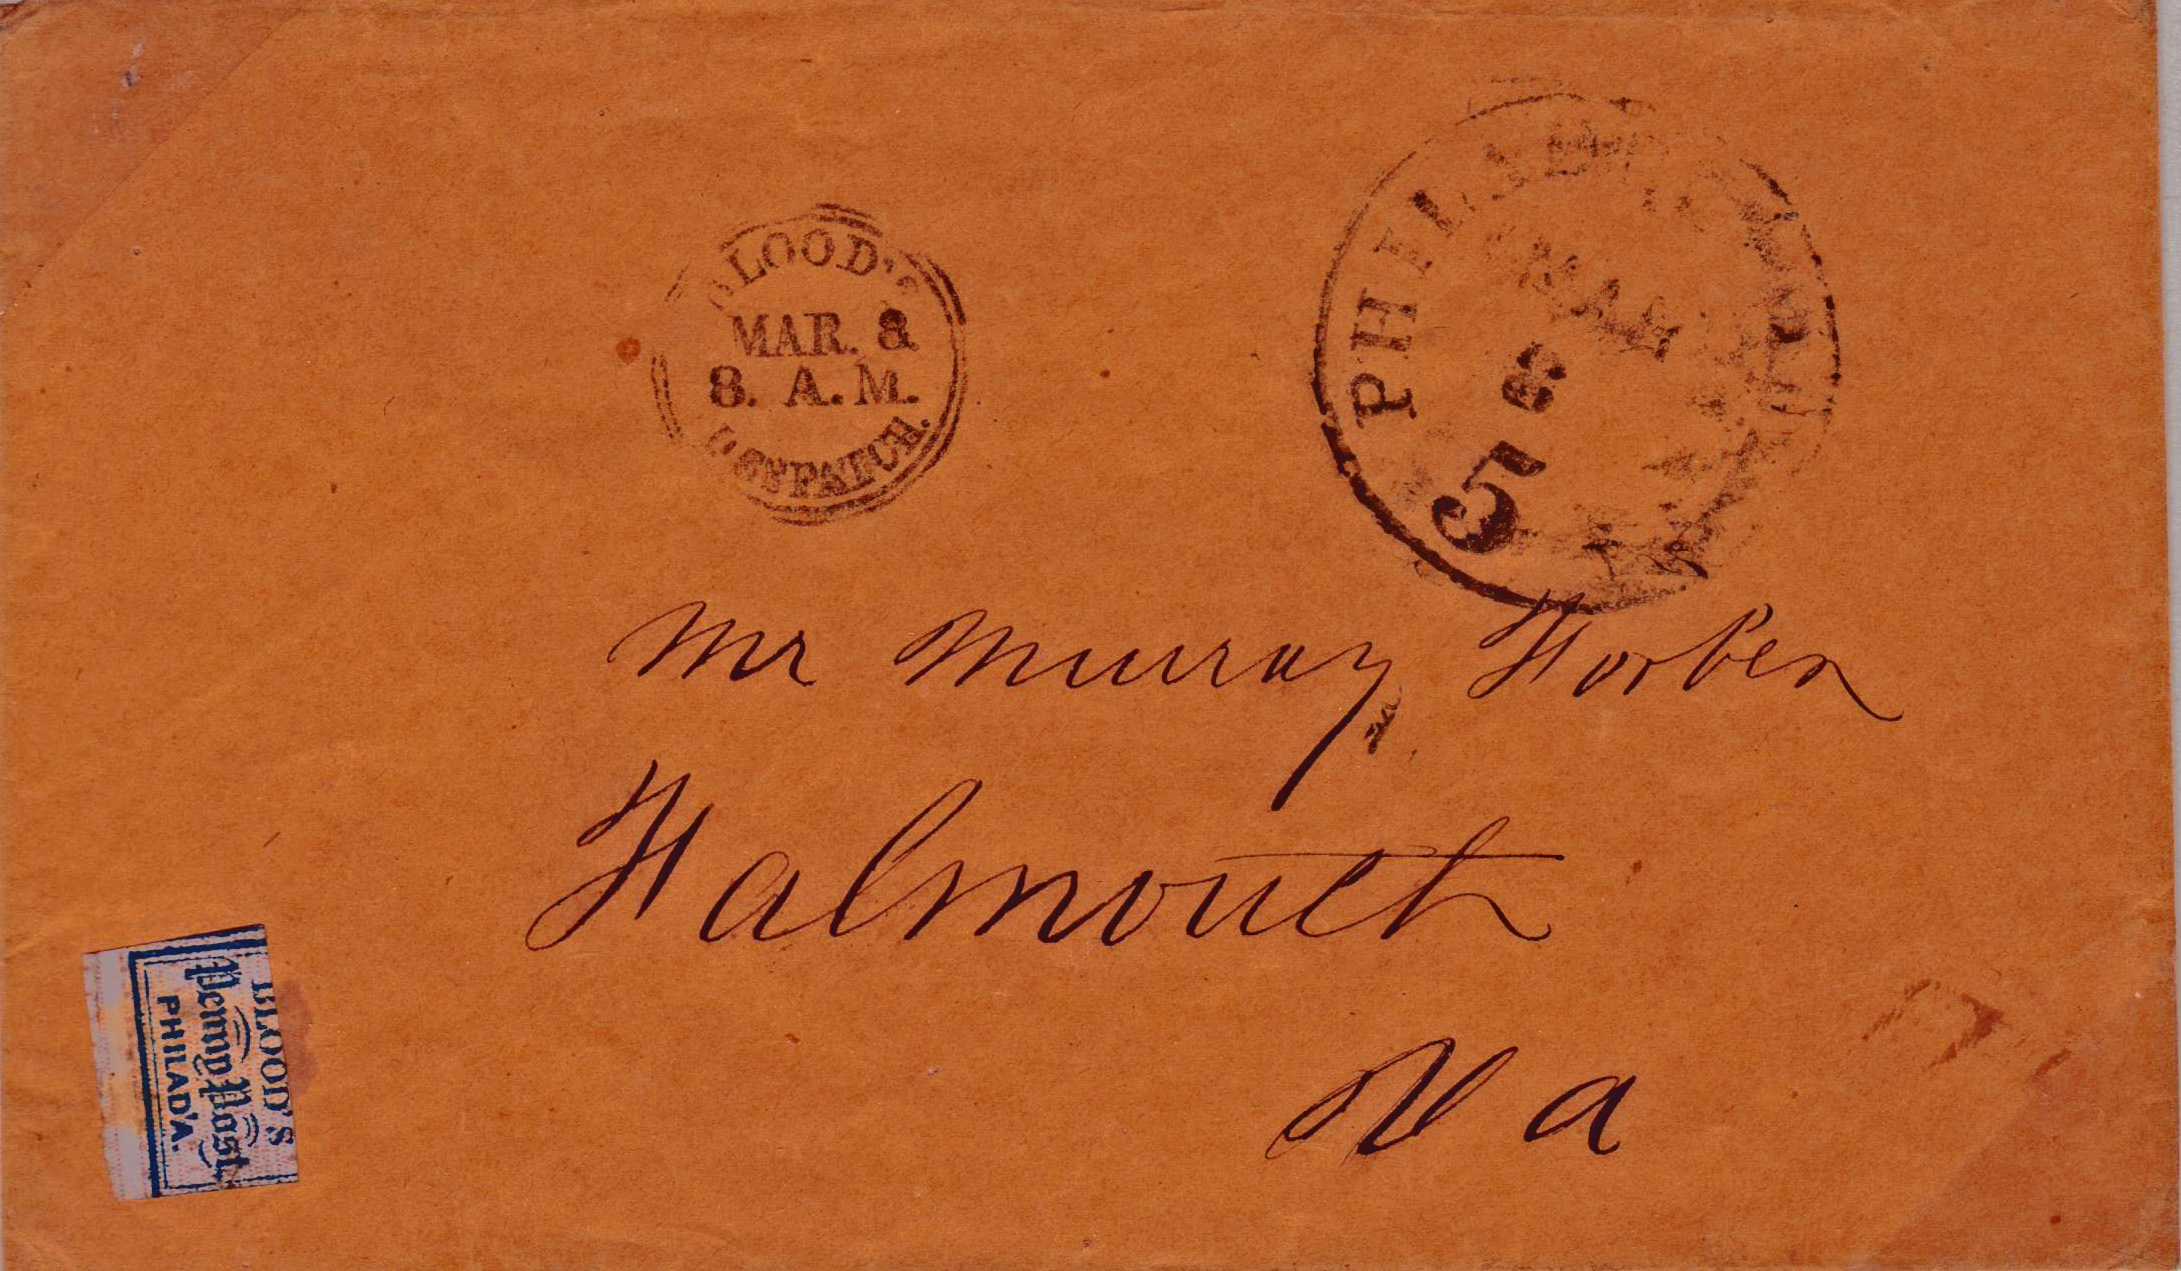 BLOOD'S
MAR. 8
8. A.M.
DESPATCH.
PHILADELPHIA
MAR
8
5
Mr Murray Forbes
Falmouth
Va
BLOOD'S
Penny Post
PHILAD'A.